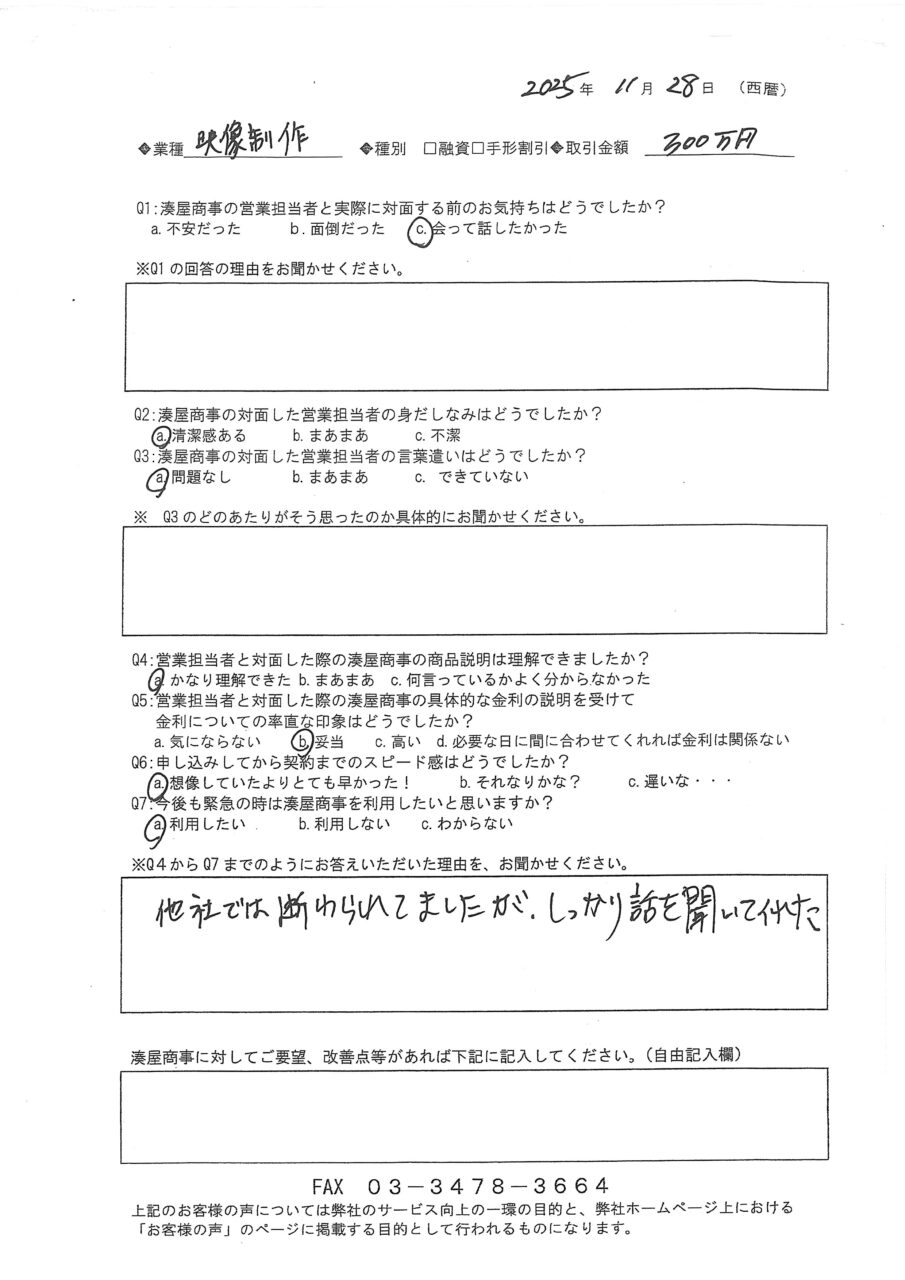 2025年 11月 28日 (西暦)
◆業種 映像制作 ◆種別 □融資□手形割引◆取引金額 300万円
Q1:湊屋商事の営業担当者と実際に対面する前のお気持ちはどうでしたか?
a.不安だった b.面倒だった c.会って話したかった
※Q1の回答の理由をお聞かせください。
Q2:湊屋商事の対面した営業担当者の身だしなみはどうでしたか?
a.清潔感ある b.まあまあ c.不潔
Q3:湊屋商事の対面した営業担当者の言葉遣いはどうでしたか?
a.問題なし b.まあまあ c. できていない
※ Q3のどのあたりがそう思ったのか具体的にお聞かせください。
Q4:営業担当者と対面した際の湊屋商事の商品説明は理解できましたか?
a.かなり理解できた b.まあまあ c.何言っているかよく分からなかった
Q5:営業担当者と対面した際の湊屋商事の具体的な金利の説明を受けて
金利についての率直な印象はどうでしたか?
a.気にならない b.妥当 c.高い d.必要な日に間に合わせてくれれば金利は関係ない
Q6:申し込みしてから契約までのスピード感はどうでしたか?
a.想像していたよりとても早かった! b.それなりかな? c.遅いな・・・
Q7:今後も緊急の時は湊屋商事を利用したいと思いますか?
a.利用したい b.利用しない c.わからない
※Q4からQ7までのようにお答えいただいた理由を、お聞かせください。
他社では断わられてましたが、しっかり話を聞いて付けた
湊屋商事に対してご要望、改善点等があれば下記に記入してください。(自由記入欄)
FAX 03-3478-3664
上記のお客様の声については弊社のサービス向上の一環の目的と、弊社ホームページ上における
「お客様の声」のページに掲載する目的として行われるものになります。